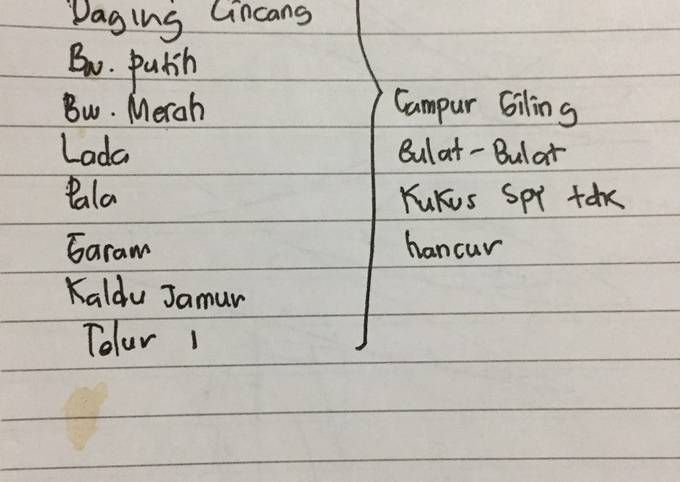 Daging Cincang
Bw. putih
Bw. Merah
Lada
Pala
Garam
Kaldu Jamur
Telur 1
Campur Giling
Bulat-Bulat
Kukus Spy tdk
hancur